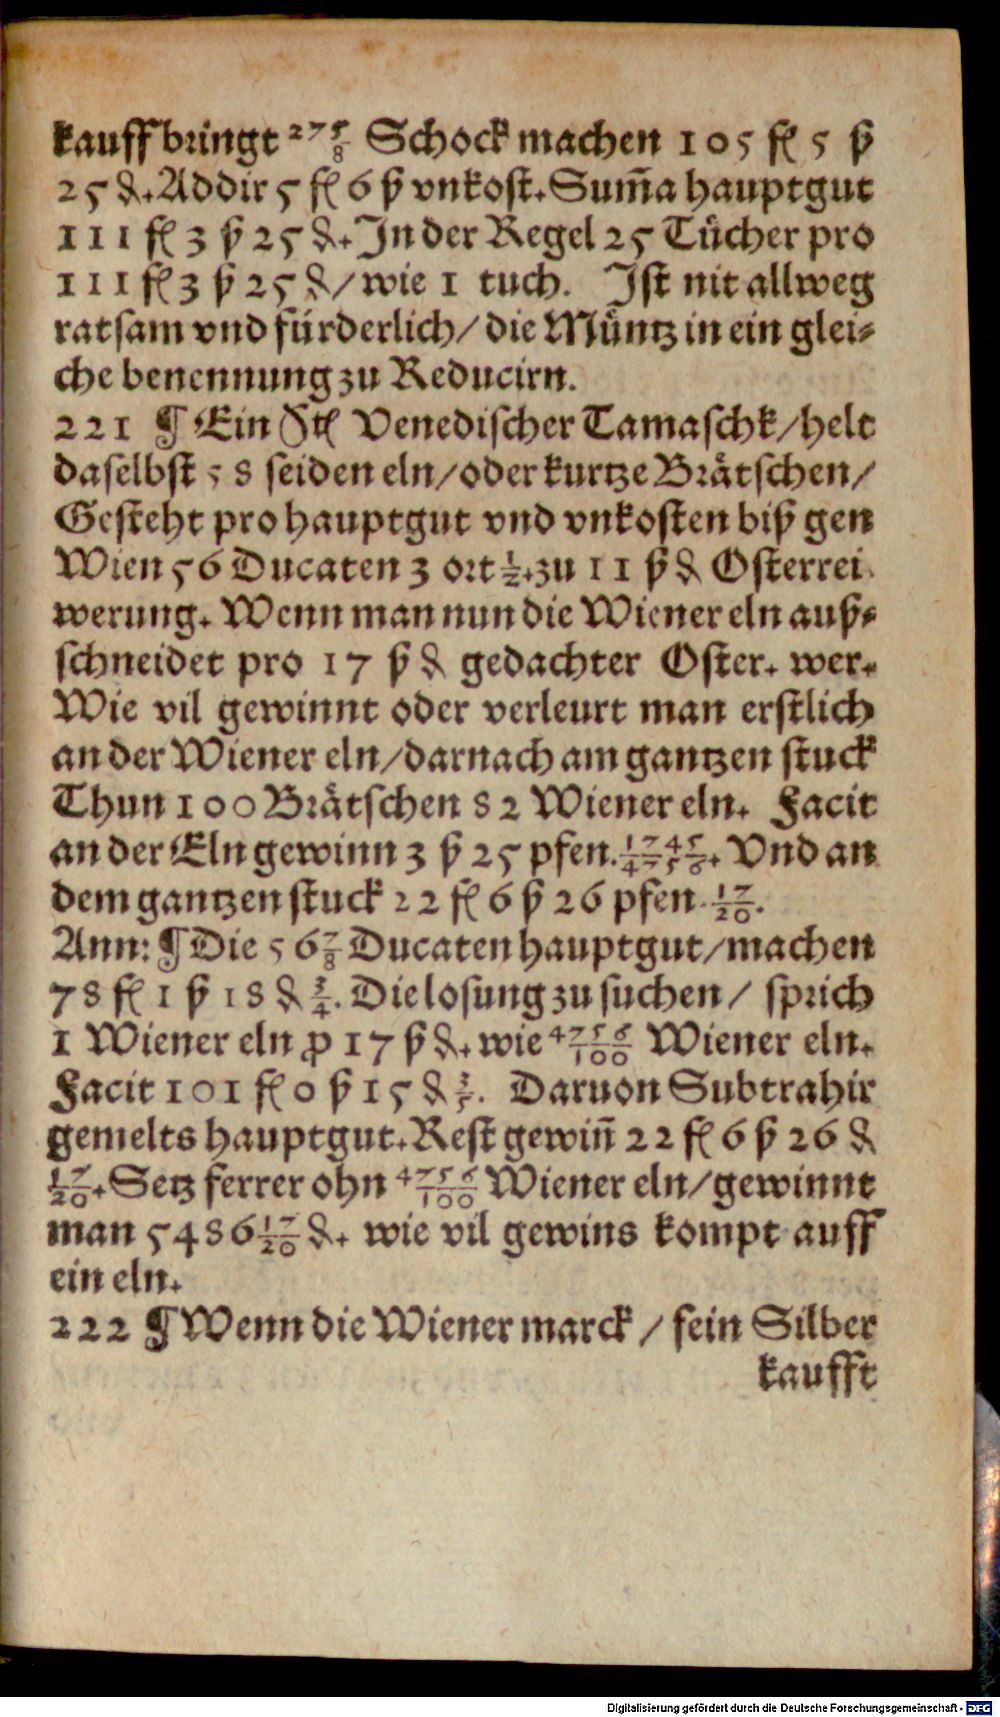 kauff bringt 275/8 Schock machen 105 fl 5 ß
25 ₰. Addir 5 fl 6 ß vnkost. Sum̃a hauptgut
111 fl 3 ß 25 ₰. In der Regel 25 Tücher pro
111 fl 3 ß 25 ₰/ wie 1 tuch. Ist nit allweg
ratsam vnd fürderlich/ die Müntz in ein glei⸗
che benennung zu Reducirn.
221 ¶ Ein Stl Venedischer Tamaschk/ helt
daselbst 58 seiden eln/ oder kurtze Brätschen/
Gesteht pro hauptgut vnd vnkosten biß gen
Wien 56 Ducaten 3 ort 1/2. zu 11 ß ₰ Osterrei.
werung. Wenn man nun die Wiener eln auß⸗
schneidet pro 17 ß ₰ gedachter Oster. wer.
Wie vil gewinnt oder verleurt man erstlich
an der Wiener eln/ darnach am gantzen stuck
Thun 100 Brätschen 82 Wiener eln. Facit
an der Eln gewinn 3 ß 25 pfen. 1745/4756. Vnd an
dem gantzen stuck 22 fl 6 ß 26 pfen. 17/20.
Ann: ¶ Die 56 7/8 Ducaten hauptgut/ machen
78 fl 1 ß 18 ₰ 3/4. Die losung zu suchen/ sprich
1 Wiener eln ꝓ 17 ß ₰. wie 4756/100 Wiener eln.
Facit 101 fl 0 ß 15 ₰ 3/5. Daruon Subtrahir
gemelts hauptgut. Rest gewin̄ 22 fl 6 ß 26 ₰
17/20. Setz ferrer ohn 4756/100 Wiener eln/ gewinnt
man 5486 17/20 ₰. wie vil gewins kompt auff
ein eln.
222 ¶ Wenn die Wiener marck / fein Silber
kaufft
Digitalisierung gefördert durch die Deutsche Forschungsgemeinschaft - DFG